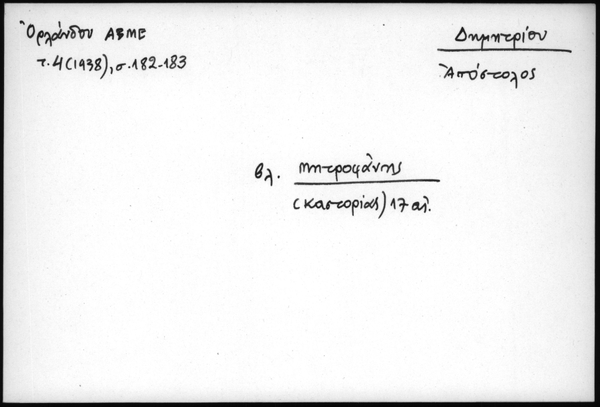 Ὀρλάνδου ΑΒΜΕ
τ. 4 (1938), σ. 182-183
Δημητρίου
Ἀπόστολος
βλ. Μητροφάνης
(Καστορίας) 17 αἰ.